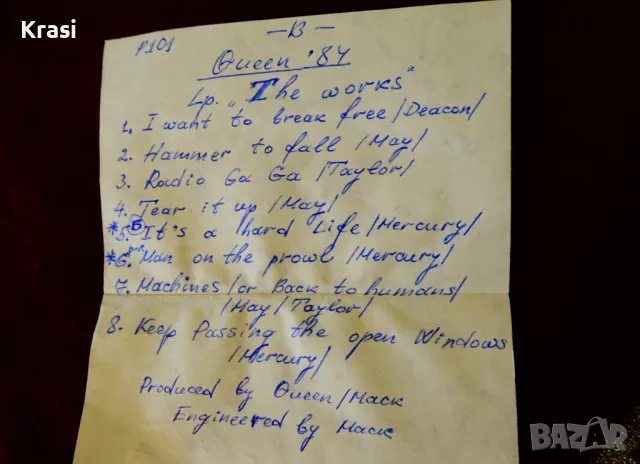 Krasi
P101
— B —
Queen '84
Lp. „The works"
1. I want to break free /Deacon/
2. Hammer to fall /May/
3. Radio Ga Ga /Taylor/
4. Tear it up /May/
* 5. Б It's a hard Life /Mercury/
* 6. Man on the prowl /Mercury/
7. Machines /or Back to humans/
/May/Taylor/
8. Keep Passing the open Windows
/Mercury/
Produced by Queen/Mack
Engineered by Mack
BAZAR